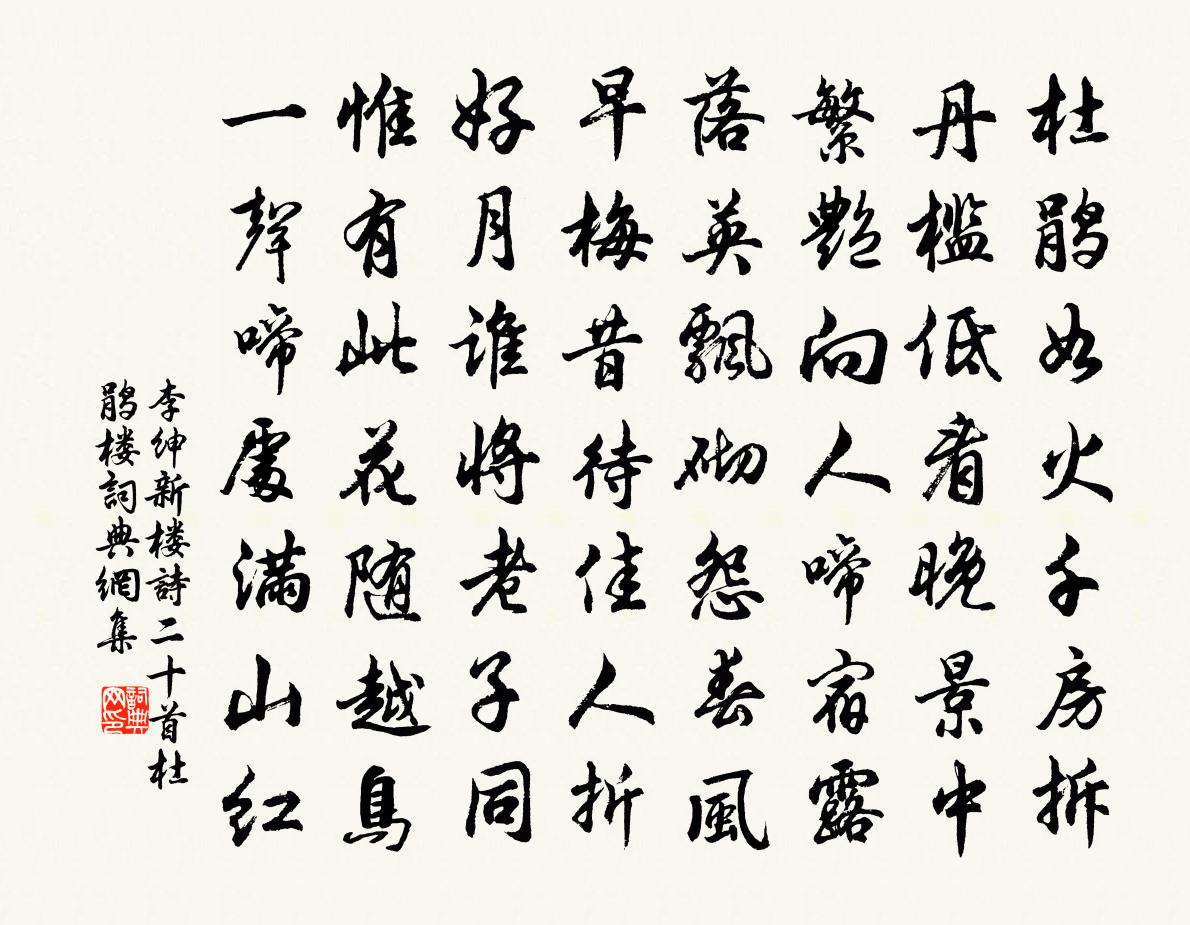 杜鹃如火千房拆
丹檻低看晚景中
繁艷向人啼宿露
落英飄砌怨春風
早梅昔待佳人折
好月誰將老子同
惟有此花随越鳥
一聲啼處满山红
李紳新楼詩二十首杜
鹃楼詞典網集
詞典网印